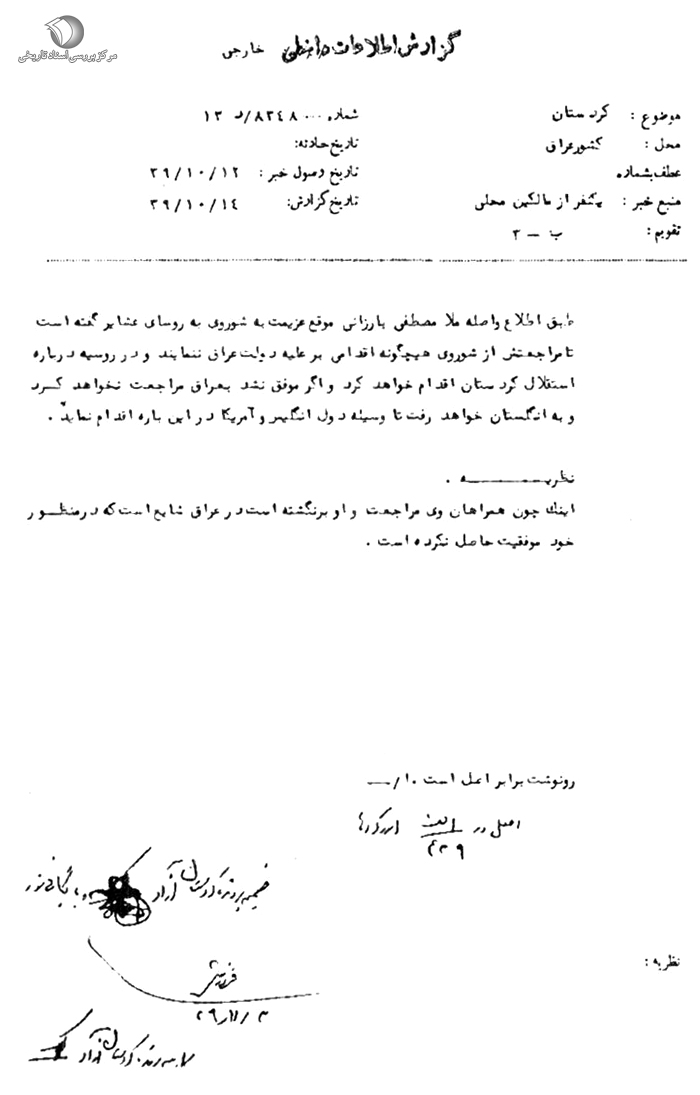 مرکز بررسی اسناد تاریخی
گزارش اطلاعات داخلی خارجی
موضوع : کردستان
شماره ۰۰۰ ۸۳۴۸/د ۱۳
محل : کشور عراق
تاریخ حادثه:
عطف بشماره
تاریخ وصول خبر : ۳۹/۱۰/۱۲
منبع خبر : یکنفر از مالکین محلی
تاریخ گزارش: ۳۹/۱۰/۱٤
تقویم : ب – ۳
طبق اطلاع واصله ملا مصطفی بارزانی موقع عزیمت به شوروی به روسای عشایر گفته است
تا مراجعتش از شوروی هیچگونه اقدامی بر علیه دولت عراق ننمایند و در روسیه درباره
استقلال کردستان اقدام خواهد کرد و اگر موفق نشد بعراق مراجعت نخواهد کرد
و به انگلستان خواهد رفت تا وسیله دول انگلیس و آمریکا در این باره اقدام نماید .
نظریـــــه .
اینك چون همراهان وی مراجعت و او برنگشته است در عراق شایع است که در منظور
خود موفقیت حاصل نکرده است .
رونوشت برابر اصل است ۱۰/
اصل در
۴۳۹
ضمیمه پرونده کردستان آزاد بایگانی شود
۳۹/۱۱/۳
کردستان آزاد
نظریه :